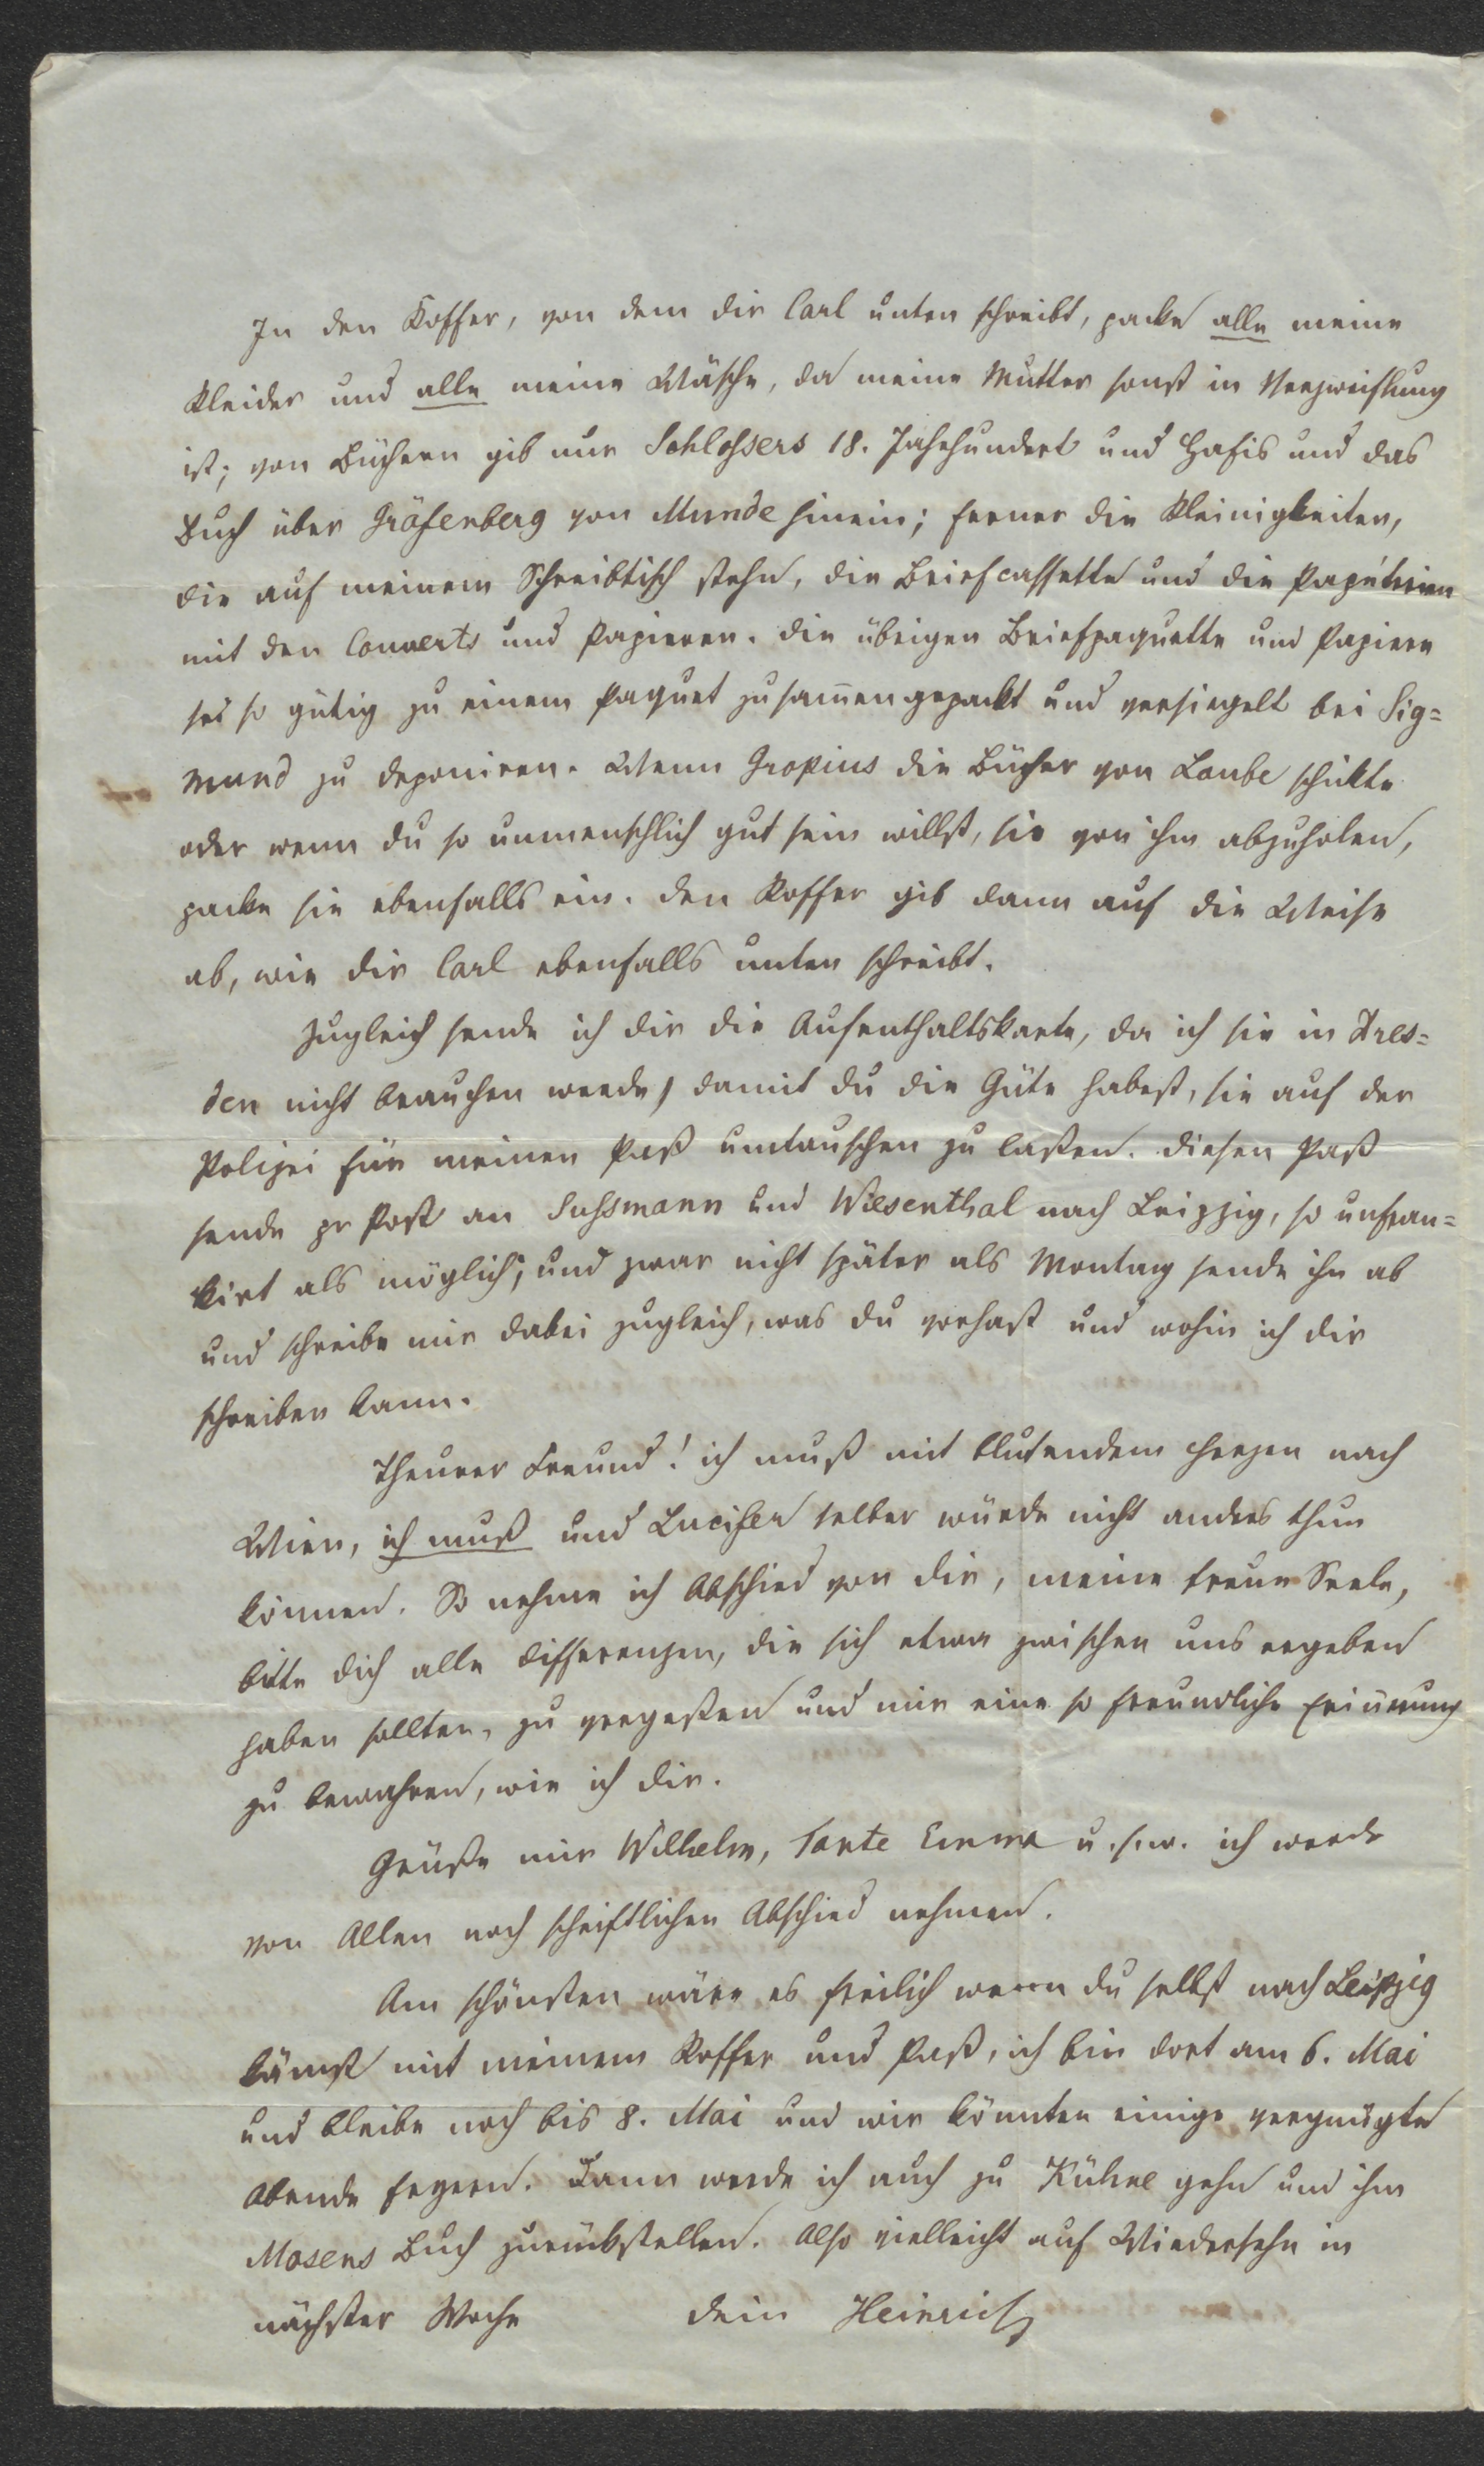 In den Koffer, von dem dir Carl unten schreibt, packe alle meine
Kleider und alle meine Wäsche, da meine Mutter sonst in Verzweiflung
ist; von Büchern gib nur Schlossers 18. Jahrhundert und Hafis und das
Buch über Gräfenberg von Munde hinein; ferner die Kleinigkeiten,
die auf meinem Schreibtisch stehn, die Briefcassette und die Papéterien
mit den Couverts und Papieren. Die übrigen Briefpaquette und Papiere
sei so gütig zu einem Paquet zusam̅engepackt und versiegelt bei Sig=
mund zu deponiren. Wenn Gropius die Bücher von Laube schickte
oder wenn du so unmenschlich gut sein willst, sie von ihm abzuholen,
packe sie ebenfalls ein. Den Koffer gib dann auf die Weise
ab, wie dir Carl ebenfalls unten schreibt.
Zugleich sende ich dir die Aufenthaltskarte, da ich sie in Dres=
den nicht brauchen werde, damit du die Güte habest, sie auf der
Polizei für meinen Paß umtauschen zu laßen. Diesen Paß
sende pr Post an Sussmann und Wiesenthal nach Leipzig, so unfran=
kirt als möglich; und zwar nicht später als Montag sende ihn ab
und schreibe mir dabei zugleich, was du vorhast und wohin ich dir
schreiben kann.
Theurer Freund! ich muß mit blutendem Herzen nach
Wien, ich muß und Lucifer selber würde nicht anders thun
können. So nehme ich Abschied von dir, meine treue Seele,
bitte dich alle Differenzen, die sich etwa zwischen uns ergeben
haben sollten, zu vergeßen und mir eine so freundliche Erin̅erung
zu bewahren, wie ich dir.
Grüße mir Wilhelm, Tante Emma u. s. w. ich werde
von Allen noch schriftlichen Abschied nehmen.
Am schönsten wäre es freilich wenn du selbst nach Leipzig
kämst mit meinem Koffer und Paß, ich bin dort am 6. Mai
und bleibe noch bis 8. Mai und wir könnten einige vergnügte
Abende feyern. Dann werde ich auch zu Kühne gehn und ihm
Mosens Buch zurückstellen. Also vielleicht auf Wiedersehn in
nächster Woche dein Heinrich